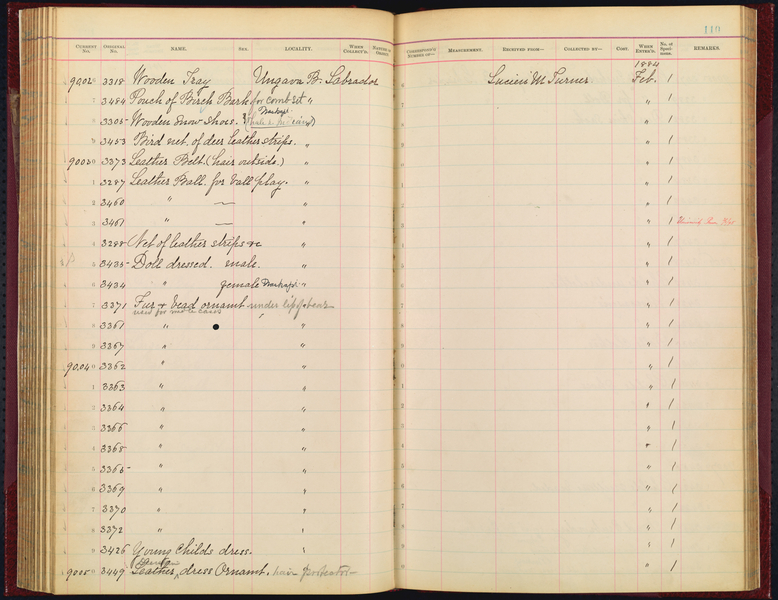 110
CURRENT No. ORIGINAL No. NAME. SEX. LOCALITY. WHEN COLLECT'D. NATURE OF OBJECT. CORRESPOND'G NUMBER OF— MEASUREMENT. RECEIVED FROM— COLLECTED BY— COST. WHEN ENTER'D. No. of Specimens. REMARKS.
1884
9002 3318 Wooden Tray Ungava B. Labrador Lucien M Turner Feb. 1
3484 Pouch of Birch Bark for comb set " " 1
3305 Wooden Snow shoes. " 1
3453 Bird net of deer leather strips. " " 1
90030 3373 Leather Belt (hair outside.) " " 1
1 3287 Leather Ball. for ball play. " " 1
2 3460 " — " " 1
3 3461 " — " " 1
4 3288 Net of leather strips &c " " 1
5 3435 Doll dressed. male. " " 1
6 3434 " female " " 1
7 3371 Fur & bead ornamt under lip of bear " " 1
used for
8 3361 " " " 1
9 3367 " " " 1
90040 3362 " " " 1
1 3363 " " " 1
2 3364 " " " 1
3 3366 " " " 1
4 3368 " " " 1
5 3365 " " " 1
6 3369 " " " 1
7 3370 " " " 1
8 3372 " " " 1
9 3426 Young Childs dress. " " 1
90050 3449 Leather dress Ornamt. hair protector " 1